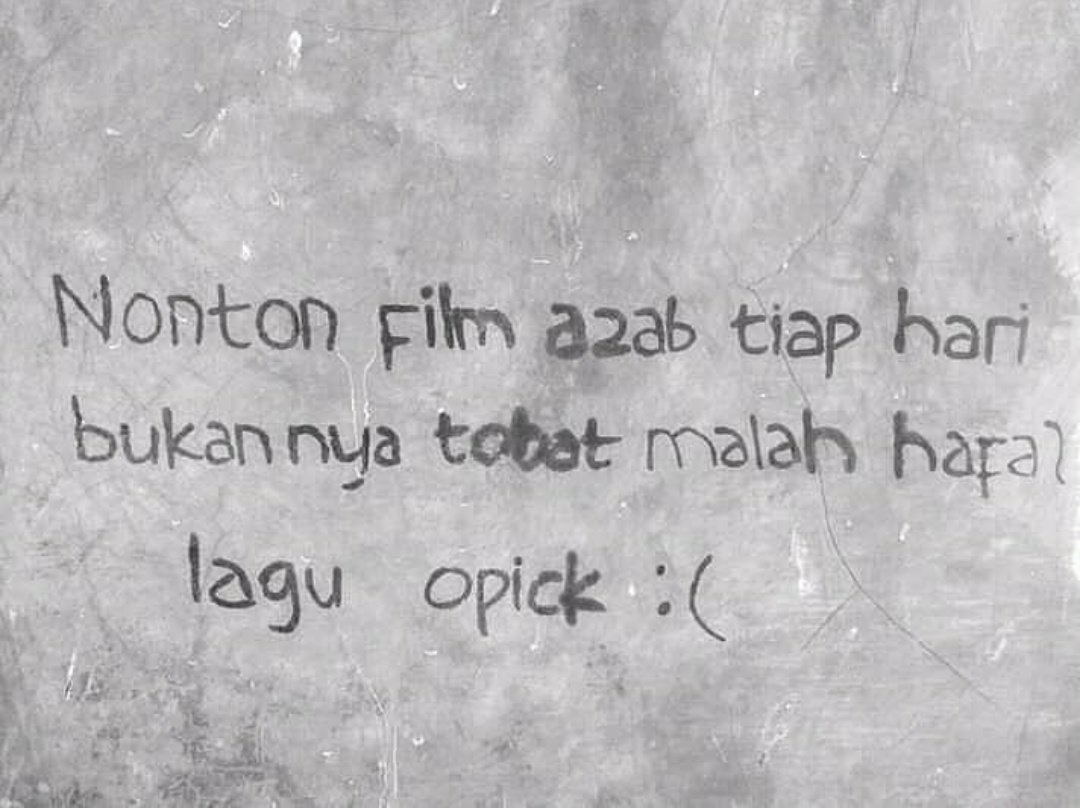 Nonton film azab tiap hari
bukannya tobat malah hafal
lagu opick :(